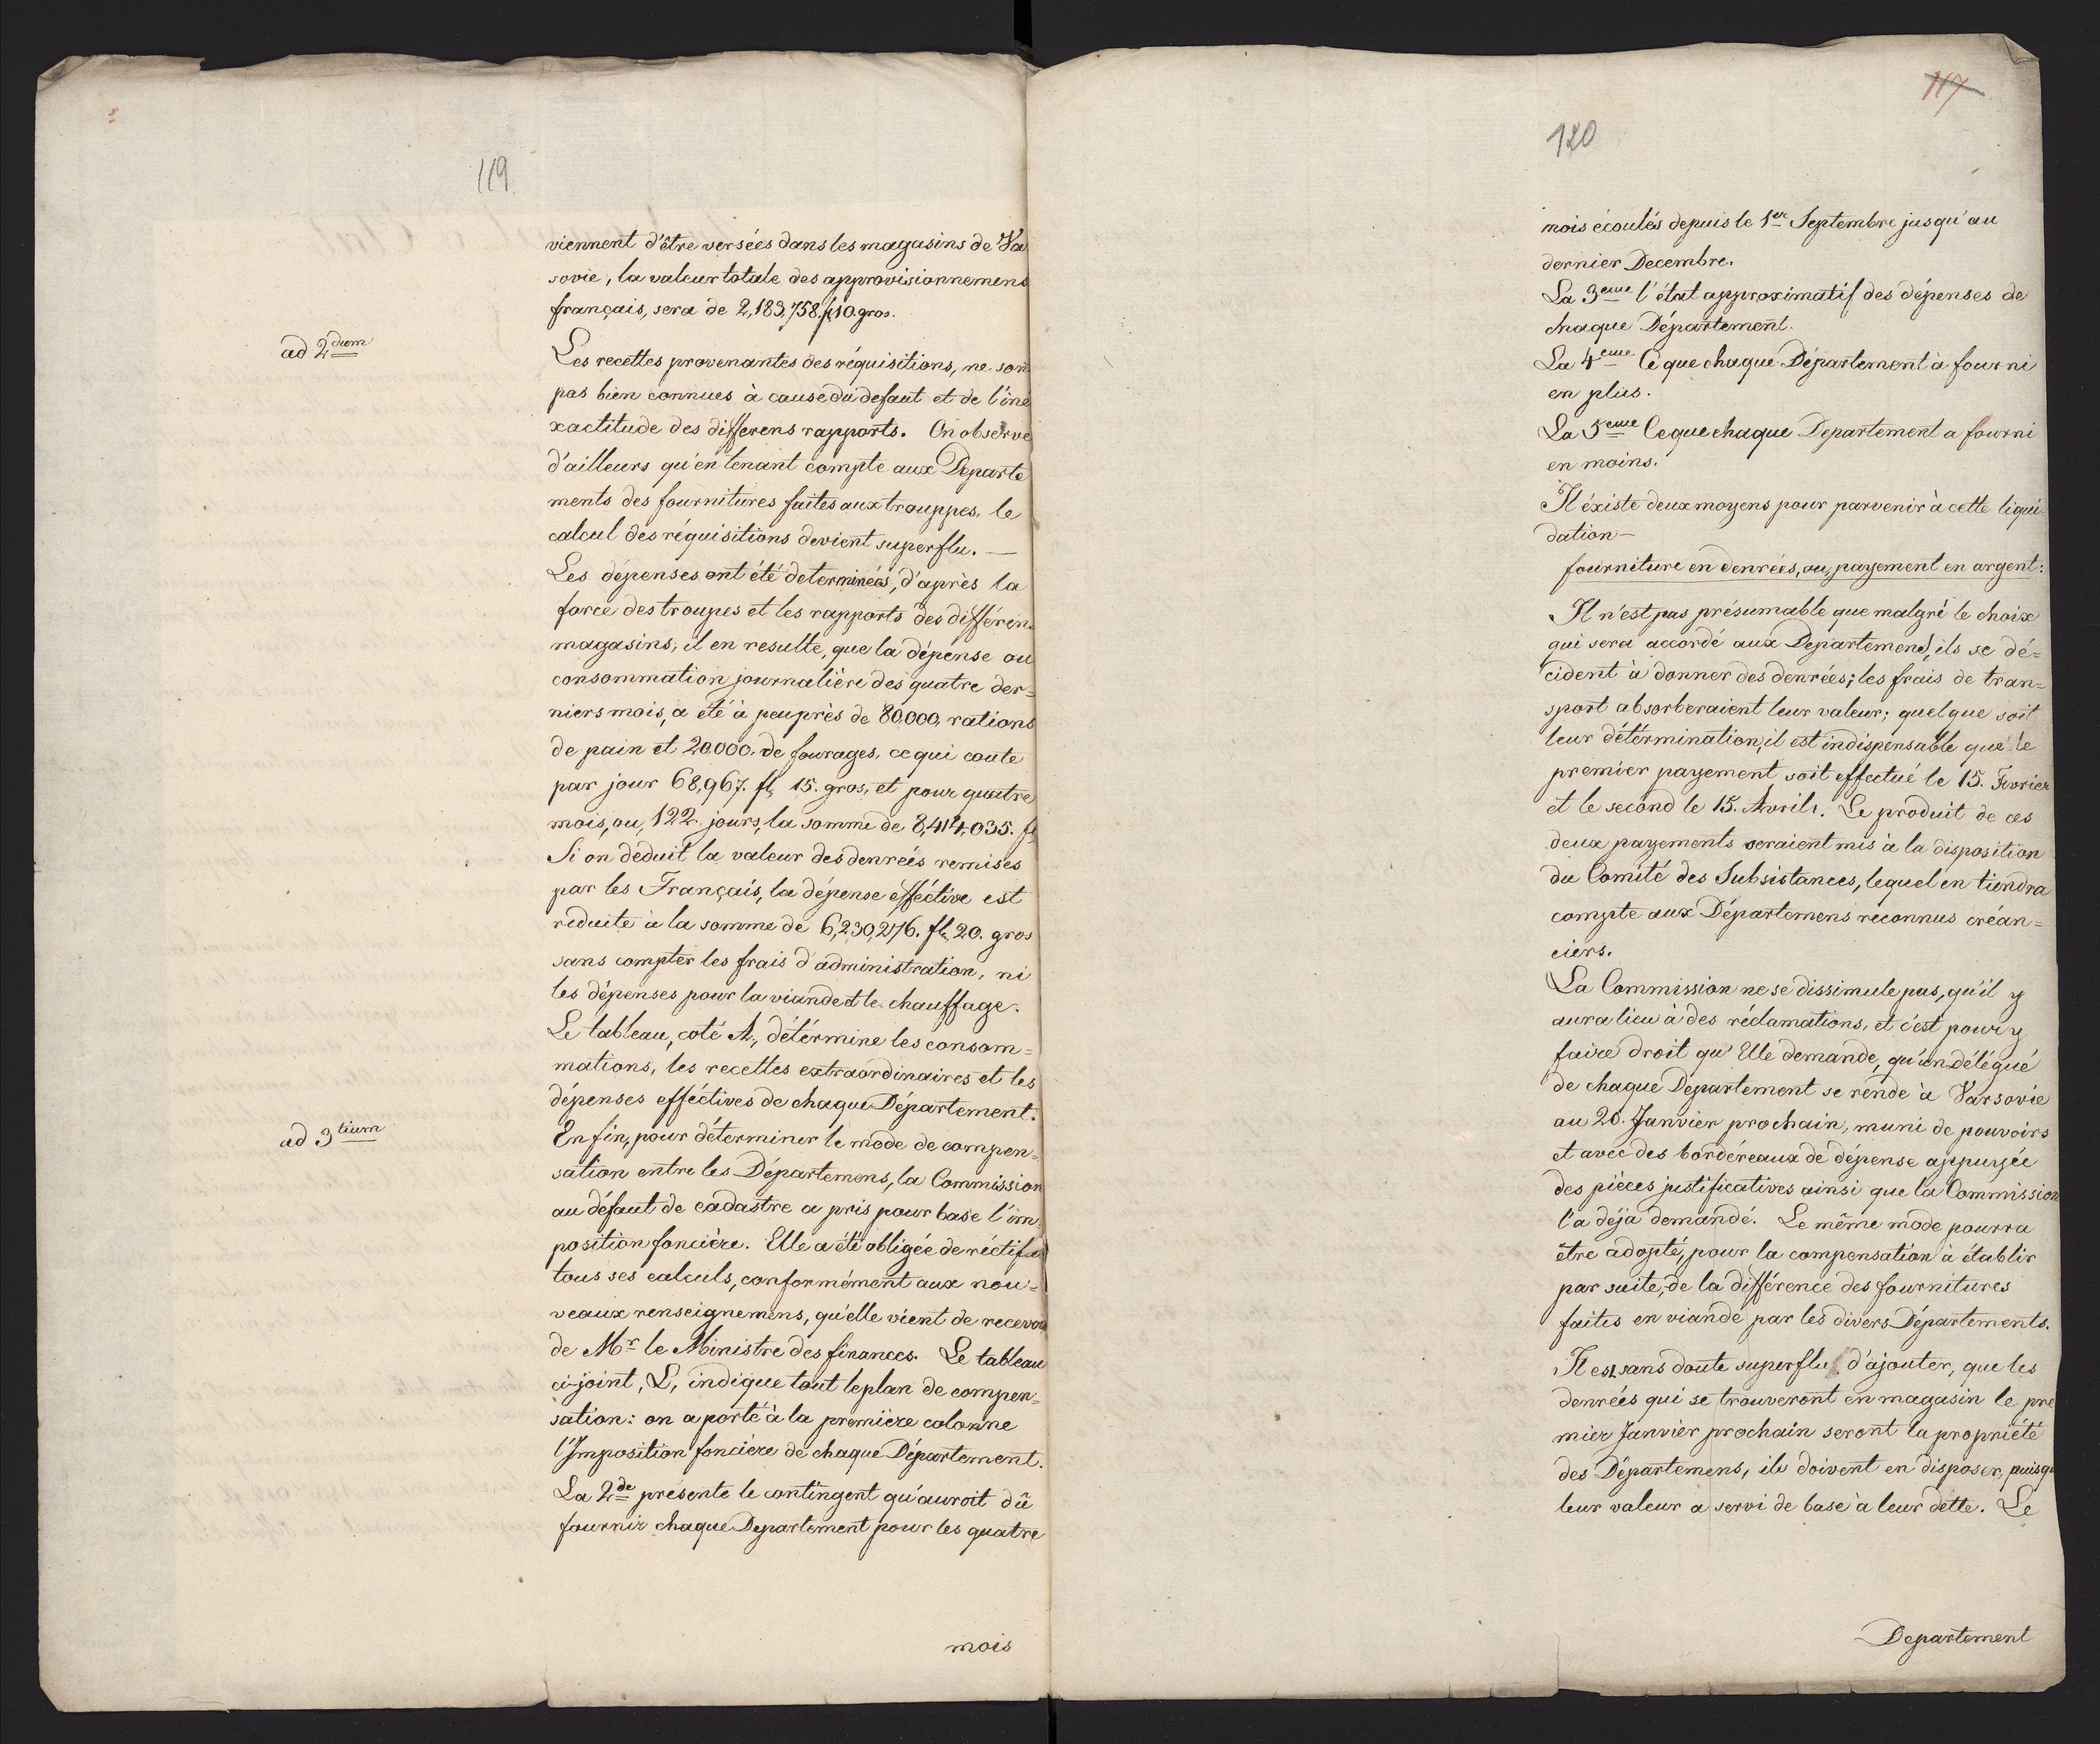 119
viennent d'être versées dans les magasins de Va
sovie, la valeur totale des approvisionnemens
français, sera de 2,183,758. fl. 10. gros.
ad 2dum
Les recettes provenantes des réquisitions, ne sont
pas bien connues à cause du defaut et de l'iné
xactitude des differens rapports. On observe
d'ailleurs qu'en tenant compte aux Departe
ments des fournitures faites aux trouppes, le
calcul des réquisitions devient superflu. —
Les dépenses ont été determinées, d'après la
force des troupes et les rapports des différens
magasins, il en resulte, que la dépense ou
consommation journalière des quatre der=
niers mois, a été à peuprès de 80,000, rations
de pain et 20.000. de fourages, ce qui coute
par jour 68,967. fl. 15. gros, et pour quatre
mois, ou, 122 jours, la somme de 8,414,035. fl.
Si on deduit la valeur des denreés remises
par les Français, la dépense éffective est
reduite à la somme de 6,230,276. fl. 20. gros
sans compter les frais d'administration, ni
les dépenses pour la viande et le chauffage.
Le tableau, coté A, détérmine les consom=
mations, les recettes extraordinaires et les
dépenses efféctives de chaque Département.
ad 3tium
En fin, pour déterminer le mode de compen=
sation entre les Départemens, la Commission
au défaut de cadastre a pris pour base l'im
position foncière. Elle a été obligée de réctifier
tous ses calculs, conformément aux nou=
veaux renseignemens, qu'elle vient de recevoir
de Mr le Ministre des finances. Le tableau
ci-joint, L, indique tout le plan de compen=
sation: on a porté à la première colonne
l'Imposition foncière de chaque Département.
La 2de présente le contingent qu'auroit dû
fournir chaque Departement pour les quatre
mois
117
120
mois écoulés depuis le 1er Septembre jusqu'au
dernier Decembre.
La 3eme l'état approximatif des dépenses de
chaque Département.
La 4eme Ce que chaque Département à fourni
en plus.
La 5eme Ce que chaque Departement a fourni
en moins.
Il éxiste deux moyens pour parvenir à cette liqui=
dation —
fourniture en denrées, ou, payement en argent:
Il n'est pas présumable que malgré le choix
qui sera accordé aux Departemens, ils se dé=
cident à donner des denrées; les frais de tran=
sport absorberaient leur valeur; quelque soit
leur détérmination, il est indispensable que le
premier payement soit effectué le 15. Fevrier
et le second le 15. Avril. Le produit de ces
deux payements seraient mis à la disposition
du Comité des Subsistances, lequel en tiendra
compte aux Départemens reconnus créan=
ciers.
La Commission ne se dissimule pas, qu'il y
aura lieu à des réclamations, et c'est pour y
faire droit qu'Elle demande, qu'un délégué
de chaque Département se rende à Varsovie
au 20. Janvier prochain, muni de pouvoirs
et avec des bordéreaux de dépense appuyée
des pièces justificatives ainsi que la Commission
l'a déja demandé. Le même mode pourra
être adopté, pour la compensation à établir
par suite, de la différence des fournitures
faites en viande par les divers Départements.
Il est sans doute superflu d'ajouter, que les
denreés qui se trouveront en magasin le pre
mier Janvier prochain seront la propriété
des Départemens, ils doivent en disposer, puisqu
leur valeur a servi de base à leur dette. Le
Departement